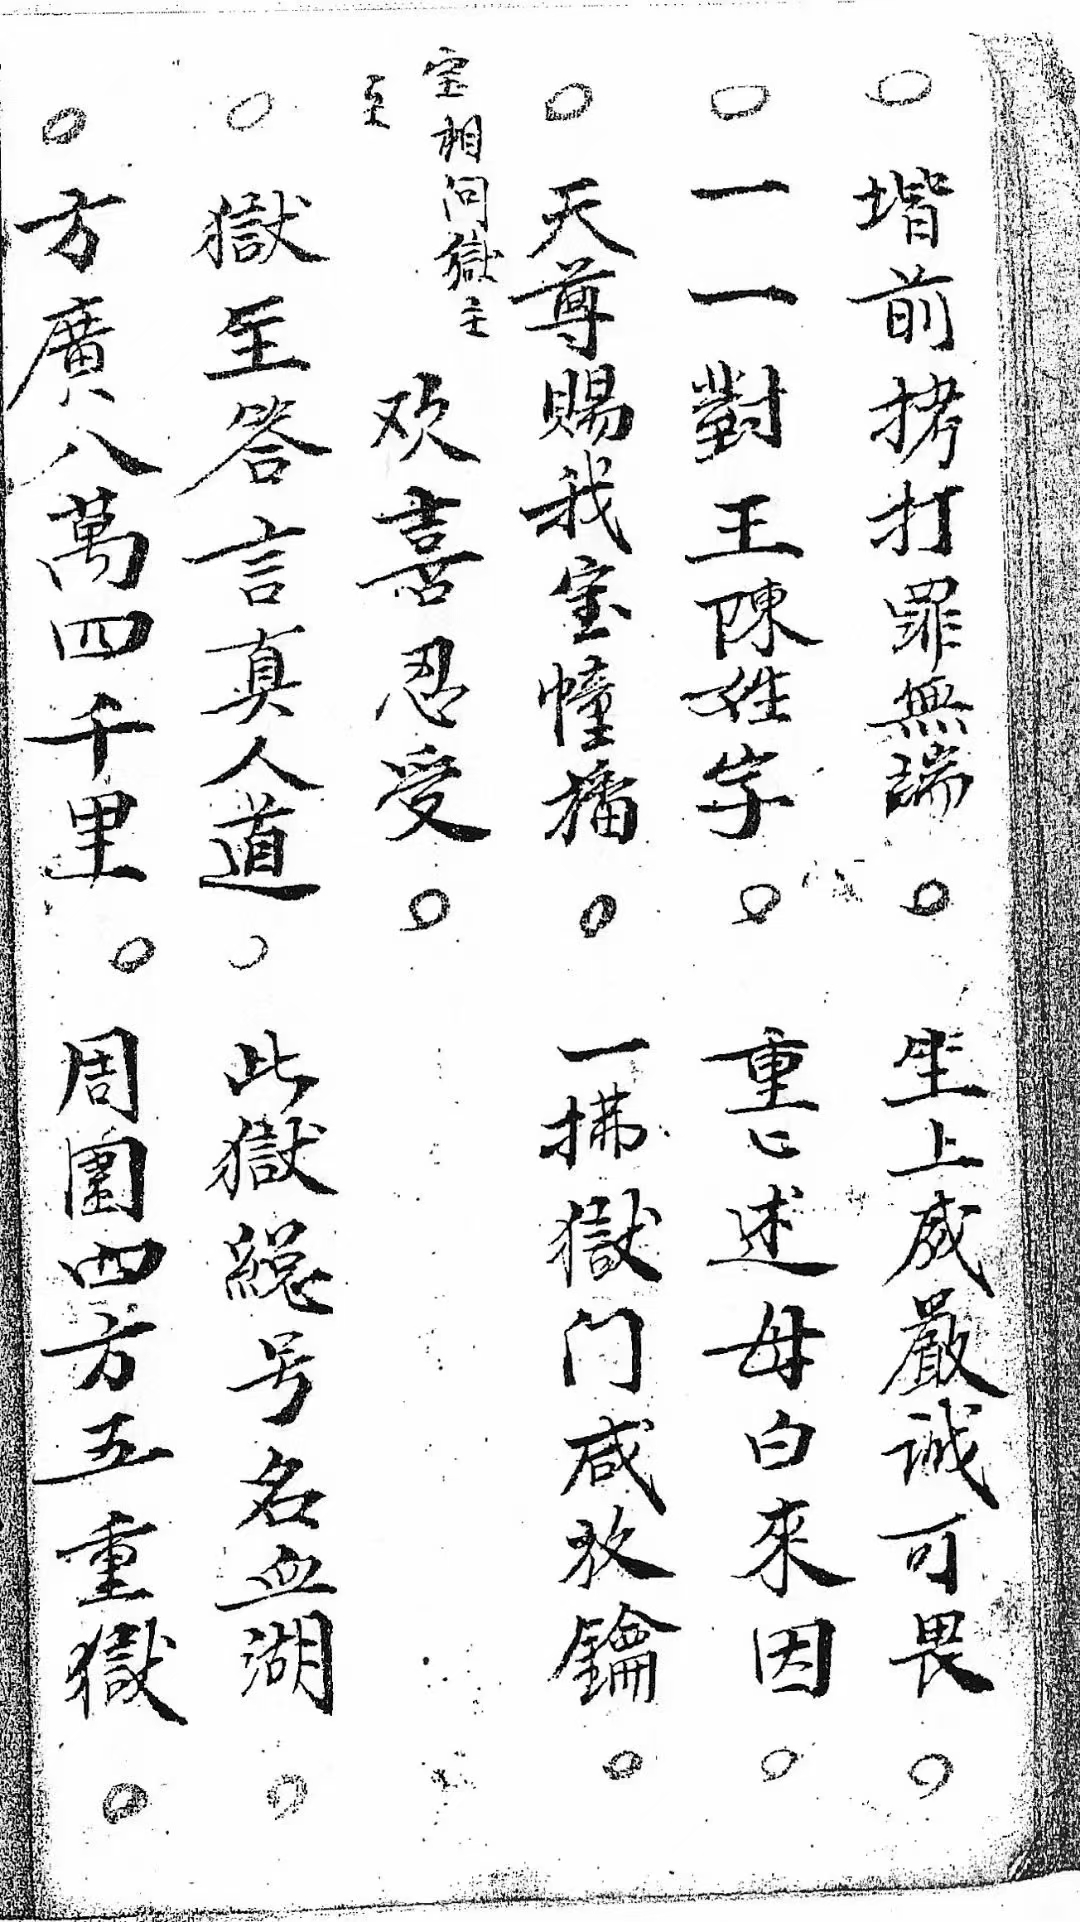 ○堦前拷打罪無端○坐上威嚴誠可畏○
○一一對王陳姓字○重〻述母白來因○
○天尊賜我宝幢旛○一拂獄门咸放鑰○
宝相问獄主
至
欢喜忍受○
○獄至答言真人道○此獄総号名血湖○
○方廣八萬四千里○周圍四方五重獄○